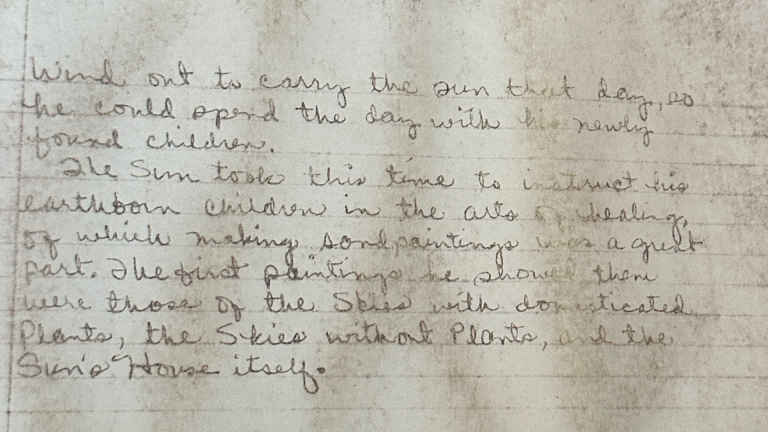 Wind out to carry the sun that day, so
he could spend the day with his newly
found children.
The Sun took this time to instruct his
earthborn children in the arts of healing,
of which making sandpaintings was a great
part. The first paintings he showed them
were those of the Skies with domesticated
Plants, the Skies without Plants, and the
Sun's House itself.